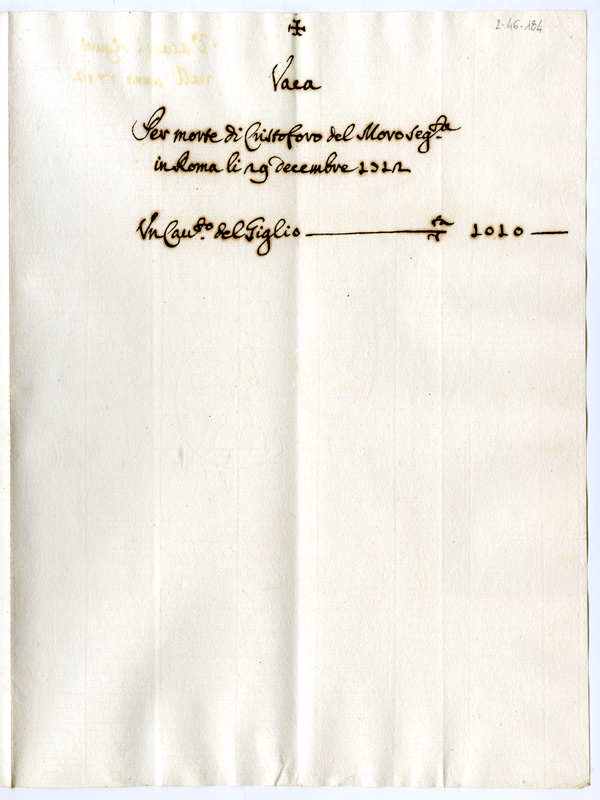 2-46-184
✠
Vaca
Per morte di Cristoforo del Moro seg.ta
in Roma li 29 decembre 1712
Un Cau.to del Giglio 1010